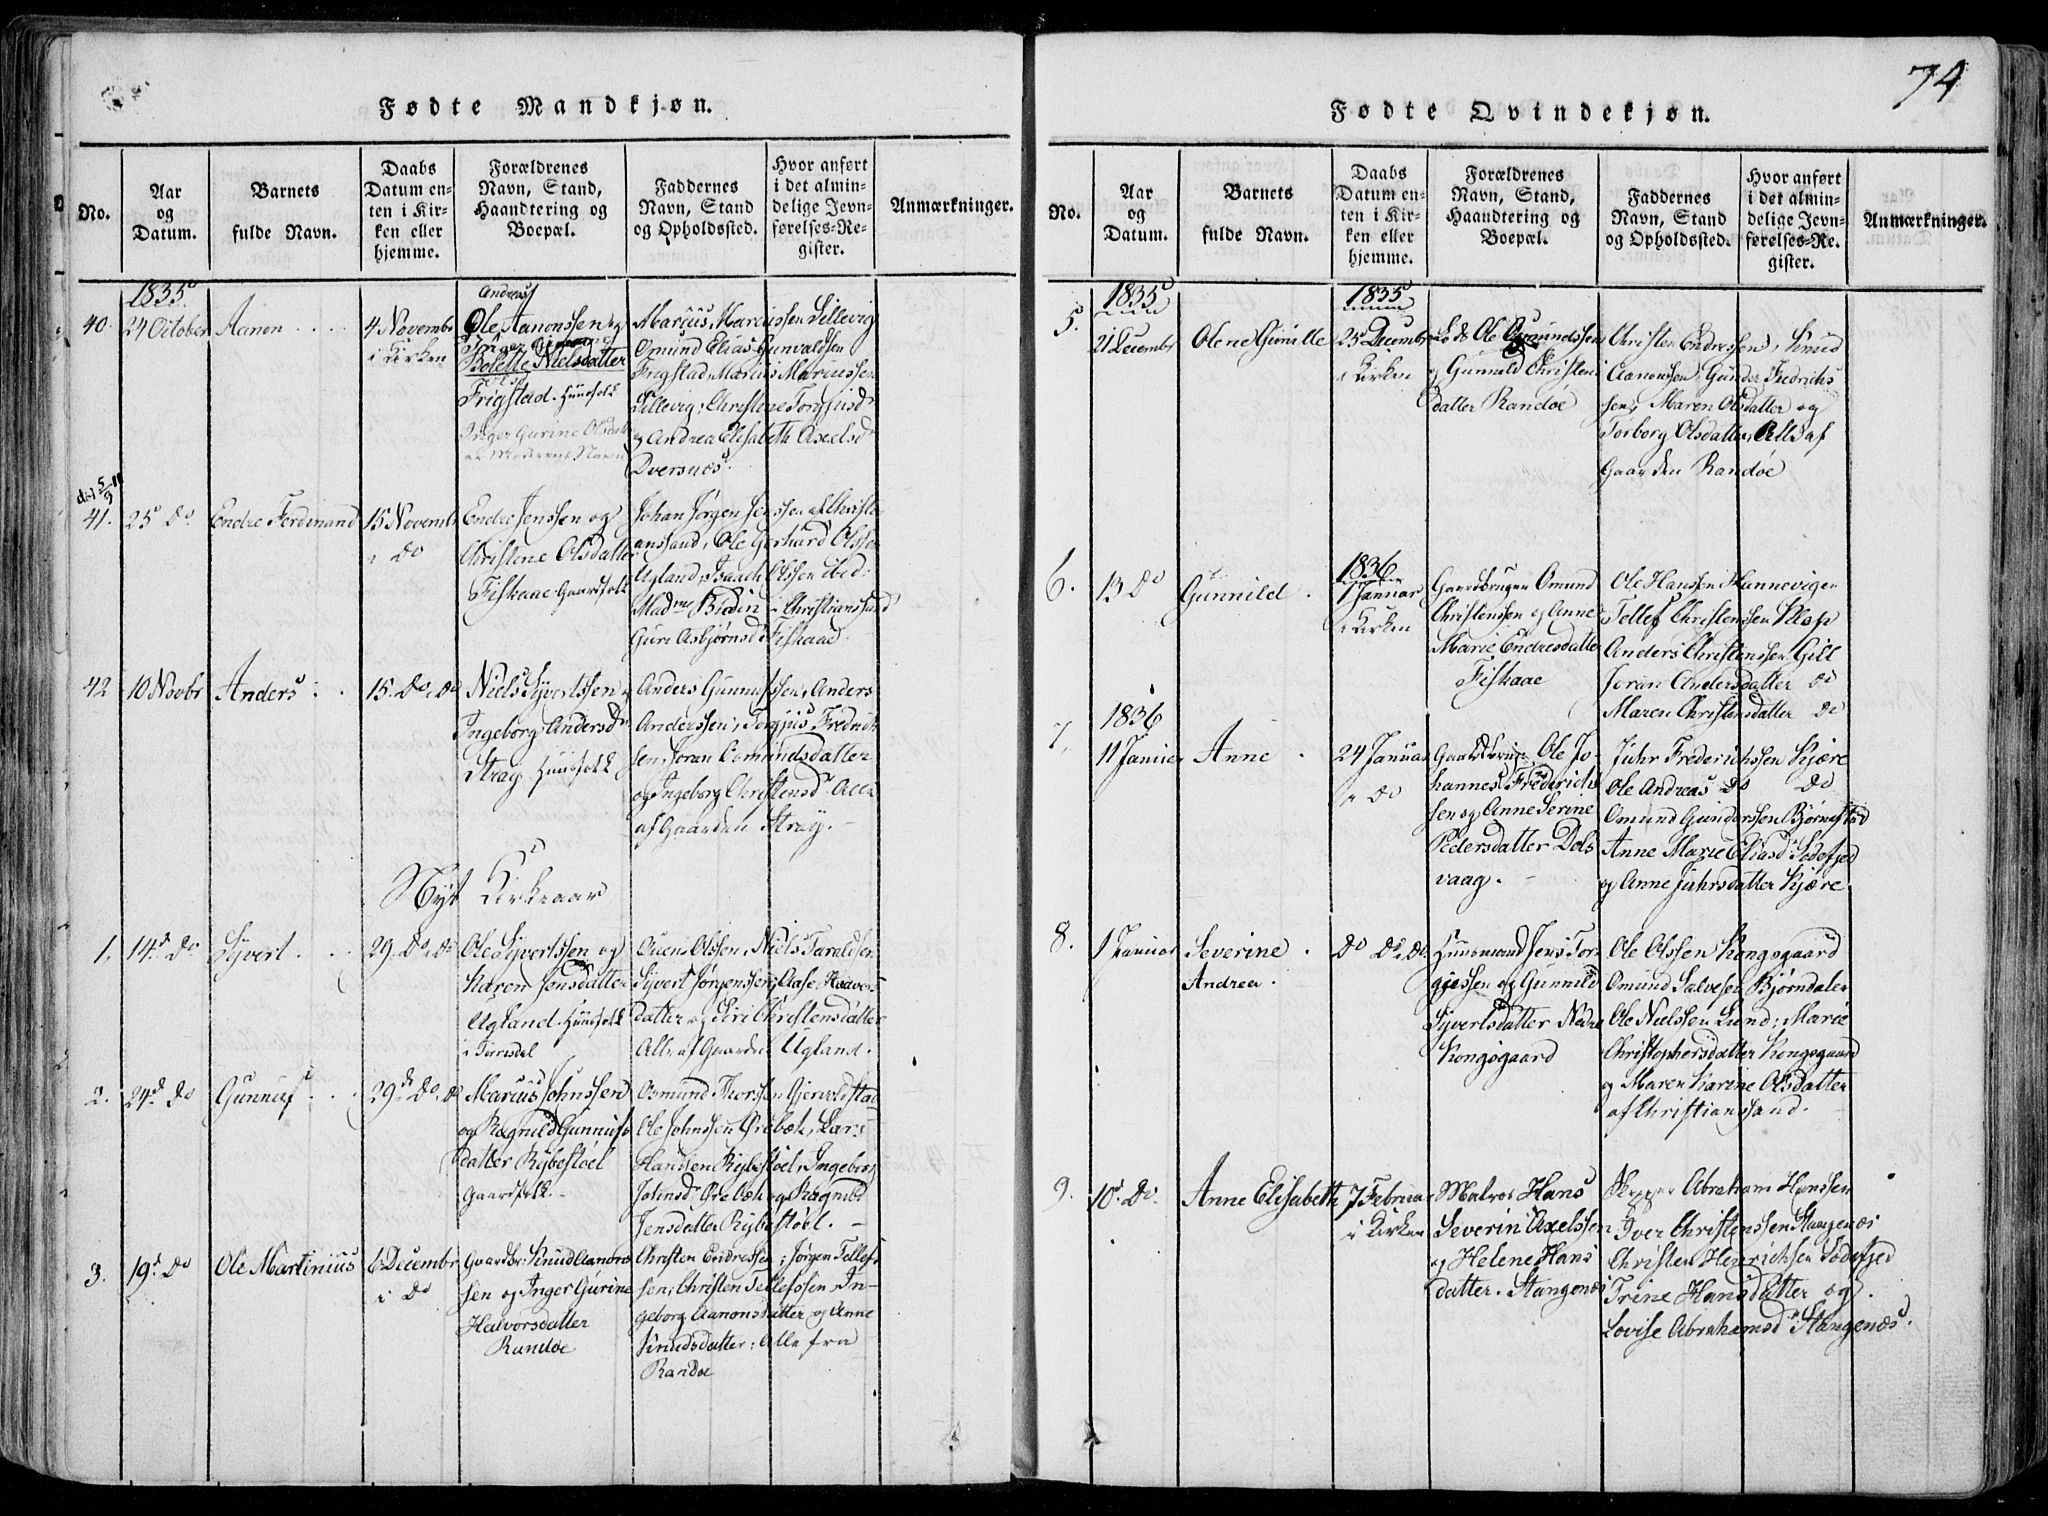 Fødte Mandkjøn.
No.
Aar
og
Datum.
Barnets
fulde Navn.
Daabs
Datum en-
ten i Kir-
ken eller
hjemme.
Forældrenes
Navn, Stand,
Haandtering og
Boepæl.
Faddernes
Navn, Stand
og Opholdssted.
Hvor anført
i det almin-
delige Jevn-
førelses-Re-
gister.
Anmærkninger.
1835
40.
24 October
Aanon
4 Novembr
i Kirken
Andreas
Ole Aanonssen og
Bolette Nielsdatter
Frigstad. Huusfolk
Inger Gurine Olsdatt
er Moderens Navn
Marcus Marcussen Lillevig
Omund Elias Gunvaldsen
Frigstad, Marcus Marcussen
Lillevig, Christine Torgjusd
og Andrea Elisabeth Axelsd
Dversnæs.
41.
25 Do
Endre Ferdinand
15 Novembr
i Do
Endre Jenssen og
Christene Olsdatter
Fiskaae Gaardfolk
Johan Jørgen Jenssen af Christi
anssand, Ole Gerhard Olssen
Ugland, Isaach Olssen ibid:
Madme Birdin i Christianssand
Guri Asbjørnsd Fiskaae
42
10 Novbr
Anders
15. Do i Do
Niels Syvertssen og
Ingeborg Andersd
Stray Huusfolk
Anders Gunnufssen, Anders
Anderssen, Torgjus Fredrik
sen, Joran Osmundsdatter
og Ingeborg Christensd. Alle
af Gaarden Stray.
Nyt Kirkeaar
1.
14d Do
Syvert.
29. Do i Do
Ole Syvertssen og
Karen Jensdatter
Ugland. Huusfolk
i Torrisdal
Ouen Olssen, Niels Taraldsen
Syvert Jørgenssen, Aase Haavors
datter og Siri Christensdatter
Alle af Gaarden Ugland.
2.
24d Do
Gunnuf
29d Do i Do
Marcus Johnssen
og Ragnild Gunnufs
datter Rybestøel
Gaardfolk.
Osmund Thorssen Gjervoldstad
Ole Johnssen Ørebæk, Lars
Hanssen Rybestøel, Ingeborg
Johnsd. Ørebæk og Ragnild
Jensdatter Rybestøel.
3.
19d Do
Ole Martinius
6 Decembr
i Do
Gaardbr: Knud Aanons
sen og Inger Gurine
Halvorsdatter
Randøe
Christen Endressen; Jørgen Tellefs
sen; Christen Tellefssen, In-
geborg Aanonsdatter og Anne
Knudsdatter; Alle fra
Randøe
74
Fødte Qvindekjøn.
No.
Aar
og
Datum.
Barnets
fulde Navn.
Daabs
Datum en-
ten i Kir-
ken eller
hjemme.
Forældrenes
Navn, Stand,
Haandtering og
Boepæl.
Faddernes
Navn, Stand
og Opholdssted.
Hvor anført
i det almin-
delige Jevn-
førelses-Re-
gister.
Anmærkninger.
5.
1835
21 Decembr
Olene Gunille
1835
25 Decembr
i Kirken
Ole Osmundssen
og Gunuld Christens
datter Randøe
Christen Endressen, Knud
Aanonssen, Gunder Fredrichs
sen, Maren Olsdatter og
Torborg Olsdatter, Alle af
Gaarden Randøe
6.
13 Do
Gunnild
1836
1 Januar
i Kirken
Gaardbruger Omund
Christenssen og Anne
Marie Endresdatter
Fiskaae
Ole Hanssen Hannevigen
Tellef Christenssen
Anders Christenssen Gill
Joran Andersdatter Do
Maren Christensdatter Do
7.
1836
11 Januar
Anne
24 Januar
i Do
Gaardbruger Ole Jo-
hannes Frederichs
sen og Anne Serine
Pedersdatter Dols
vaag.
Juhr Frederichssen Kjære
Ole Andreas Do Do
Omund Gunderssen Bjørnestad
Anne Marie Eliasd: Sodefjed
og Anne Juhrsdatter Kjære
8.
1 Januar
Severine
Andrea.
Do Do i Do
Huusmand Jens Tor-
gjessen og Gunnild
Syvertsdatter Nedre
Kongsgaard
Ole Olssen Kongsgaard
Omund Salvesen Bjørndalen
Ole Nielssen Lund; Marie
Christophersdatter Kongsgaard
og Maren Karine Olsdatter
af Christianssand.
9.
10d Do.
Anne Elisabeth
7 Februar
i Kirken
Matros Hans
Severin Axelssen
og Helene Hans
datter. Stangenæs
Skipper Abraham Hanssen
Iver Christenssen Stangenæs
Christen Henrichsen Sodefjed
Trine Hansdatter og
Lovise Abrahamsd Stangenæs.